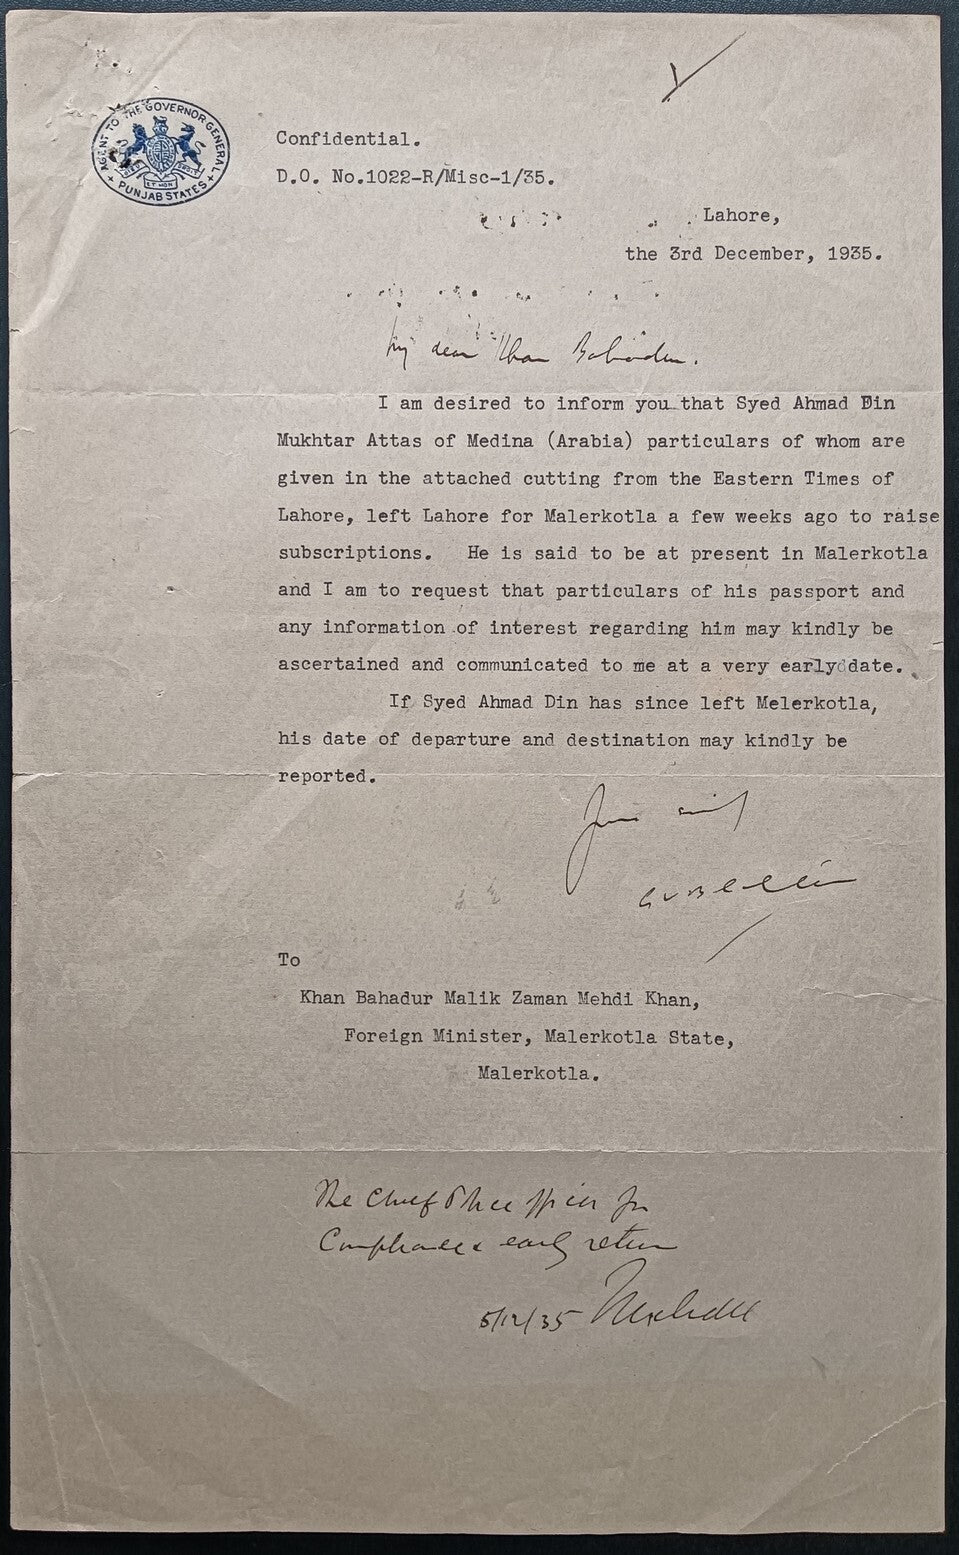 AGENT TO THE GOVERNOR GENERAL
PUNJAB STATES
Confidential.
D.O. No.1022-R/Misc-1/35.
Lahore,
the 3rd December, 1935.
My dear Khan Bahadur.
I am desired to inform you that Syed Ahmad Din
Mukhtar Attas of Medina (Arabia) particulars of whom are
given in the attached cutting from the Eastern Times of
Lahore, left Lahore for Malerkotla a few weeks ago to raise
subscriptions. He is said to be at present in Malerkotla
and I am to request that particulars of his passport and
any information of interest regarding him may kindly be
ascertained and communicated to me at a very early date.
If Syed Ahmad Din has since left Melerkotla,
his date of departure and destination may kindly be
reported.
To
Khan Bahadur Malik Zaman Mehdi Khan,
Foreign Minister, Malerkotla State,
Malerkotla.
The Chief Police Officer for
Compliance & early return
5/12/35